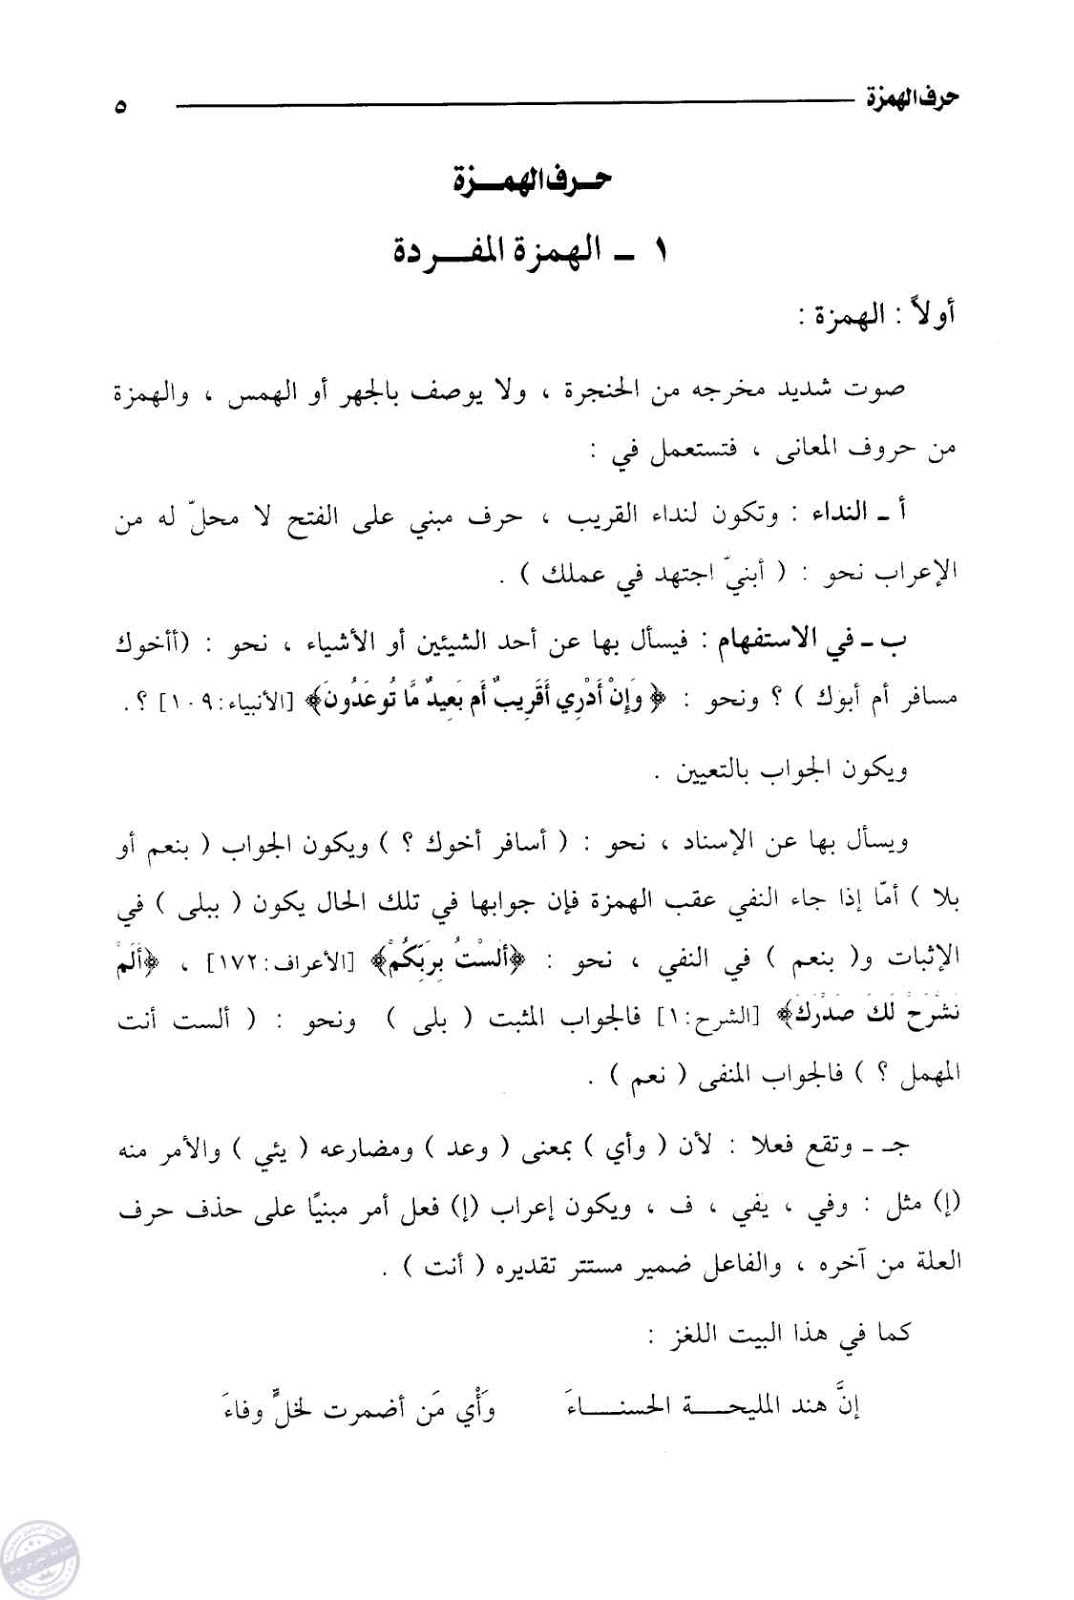 حرف الهمزة ٥
حرف الهمزة
١ ـ الهمزة المفردة
أولاً : الهمزة :
صوت شديد مخرجه من الحنجرة ، ولا يوصف بالجهر أو الهمس ، والهمزة
من حروف المعانى ، فتستعمل في :
أ ـ النداء : وتكون لنداء القريب ، حرف مبني على الفتح لا محلّ له من
الإعراب نحو : ( أبنيّ اجتهد في عملك ) .
ب ـ في الاستفهام : فيسأل بها عن أحد الشيئين أو الأشياء ، نحو : (أأخوك
مسافر أم أبوك ) ؟ ونحو : ﴿ وَإِنْ أَدْرِي أَقَرِيبٌ أَم بَعِيدٌ مَّا تُوعَدُونَ﴾ [الأنبياء:١٠٩] ؟ .
ويكون الجواب بالتعيين .
ويسأل بها عن الإسناد ، نحو : ( أسافر أخوك ؟ ) ويكون الجواب ( بنعم أو
بلا ) أمّا إذا جاء النفي عقب الهمزة فإن جوابها في تلك الحال يكون ( ببلى ) في
الإثبات و( بنعم ) في النفي ، نحو : ﴿أَلَسْتُ بِرَبِّكُمْ﴾ [الأعراف:١٧٢] ، ﴿أَلَمْ
نَشْرَحْ لَكَ صَدْرَكَ﴾ [الشرح:١] فالجواب المثبت ( بلى ) ونحو : ( ألست أنت
المهمل ؟ ) فالجواب المنفى ( نعم ) .
جـ ـ وتقع فعلا : لأن ( وأي ) بمعنى ( وعد ) ومضارعه ( يئي ) والأمر منه
(إ) مثل : وفي ، يفي ، ف ، ويكون إعراب (إ) فعل أمر مبنيًا على حذف حرف
العلة من آخره ، والفاعل ضمير مستتر تقديره ( أنت ) .
كما في هذا البيت اللغز :
إنَّ هند المليحـــة الحسنـــاءَ وَأْي مَن أضمرت لخلٍّ وفاءَ